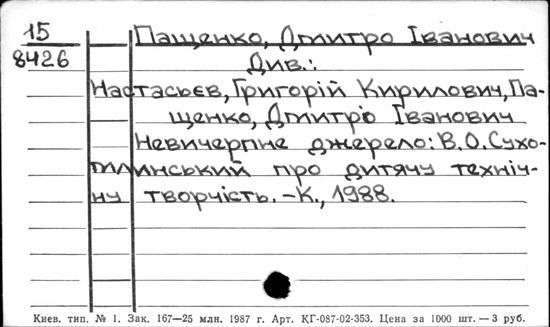 15
8426
Пащенко, Дмитро Іванович
Див.:
Настасьєв, Григорій Кирилович, Па-
щенко, Дмитро Іванович
Невичерпне джерело: В.О.Сухо-
млинський про дитячу техніч-
ну творчість. –К., 1988.
Киев. тип. № 1. Зак. 167—25 млн. 1987 г. Арт. КГ-087-02-353. Цена за 1000 шт. — 3 руб.